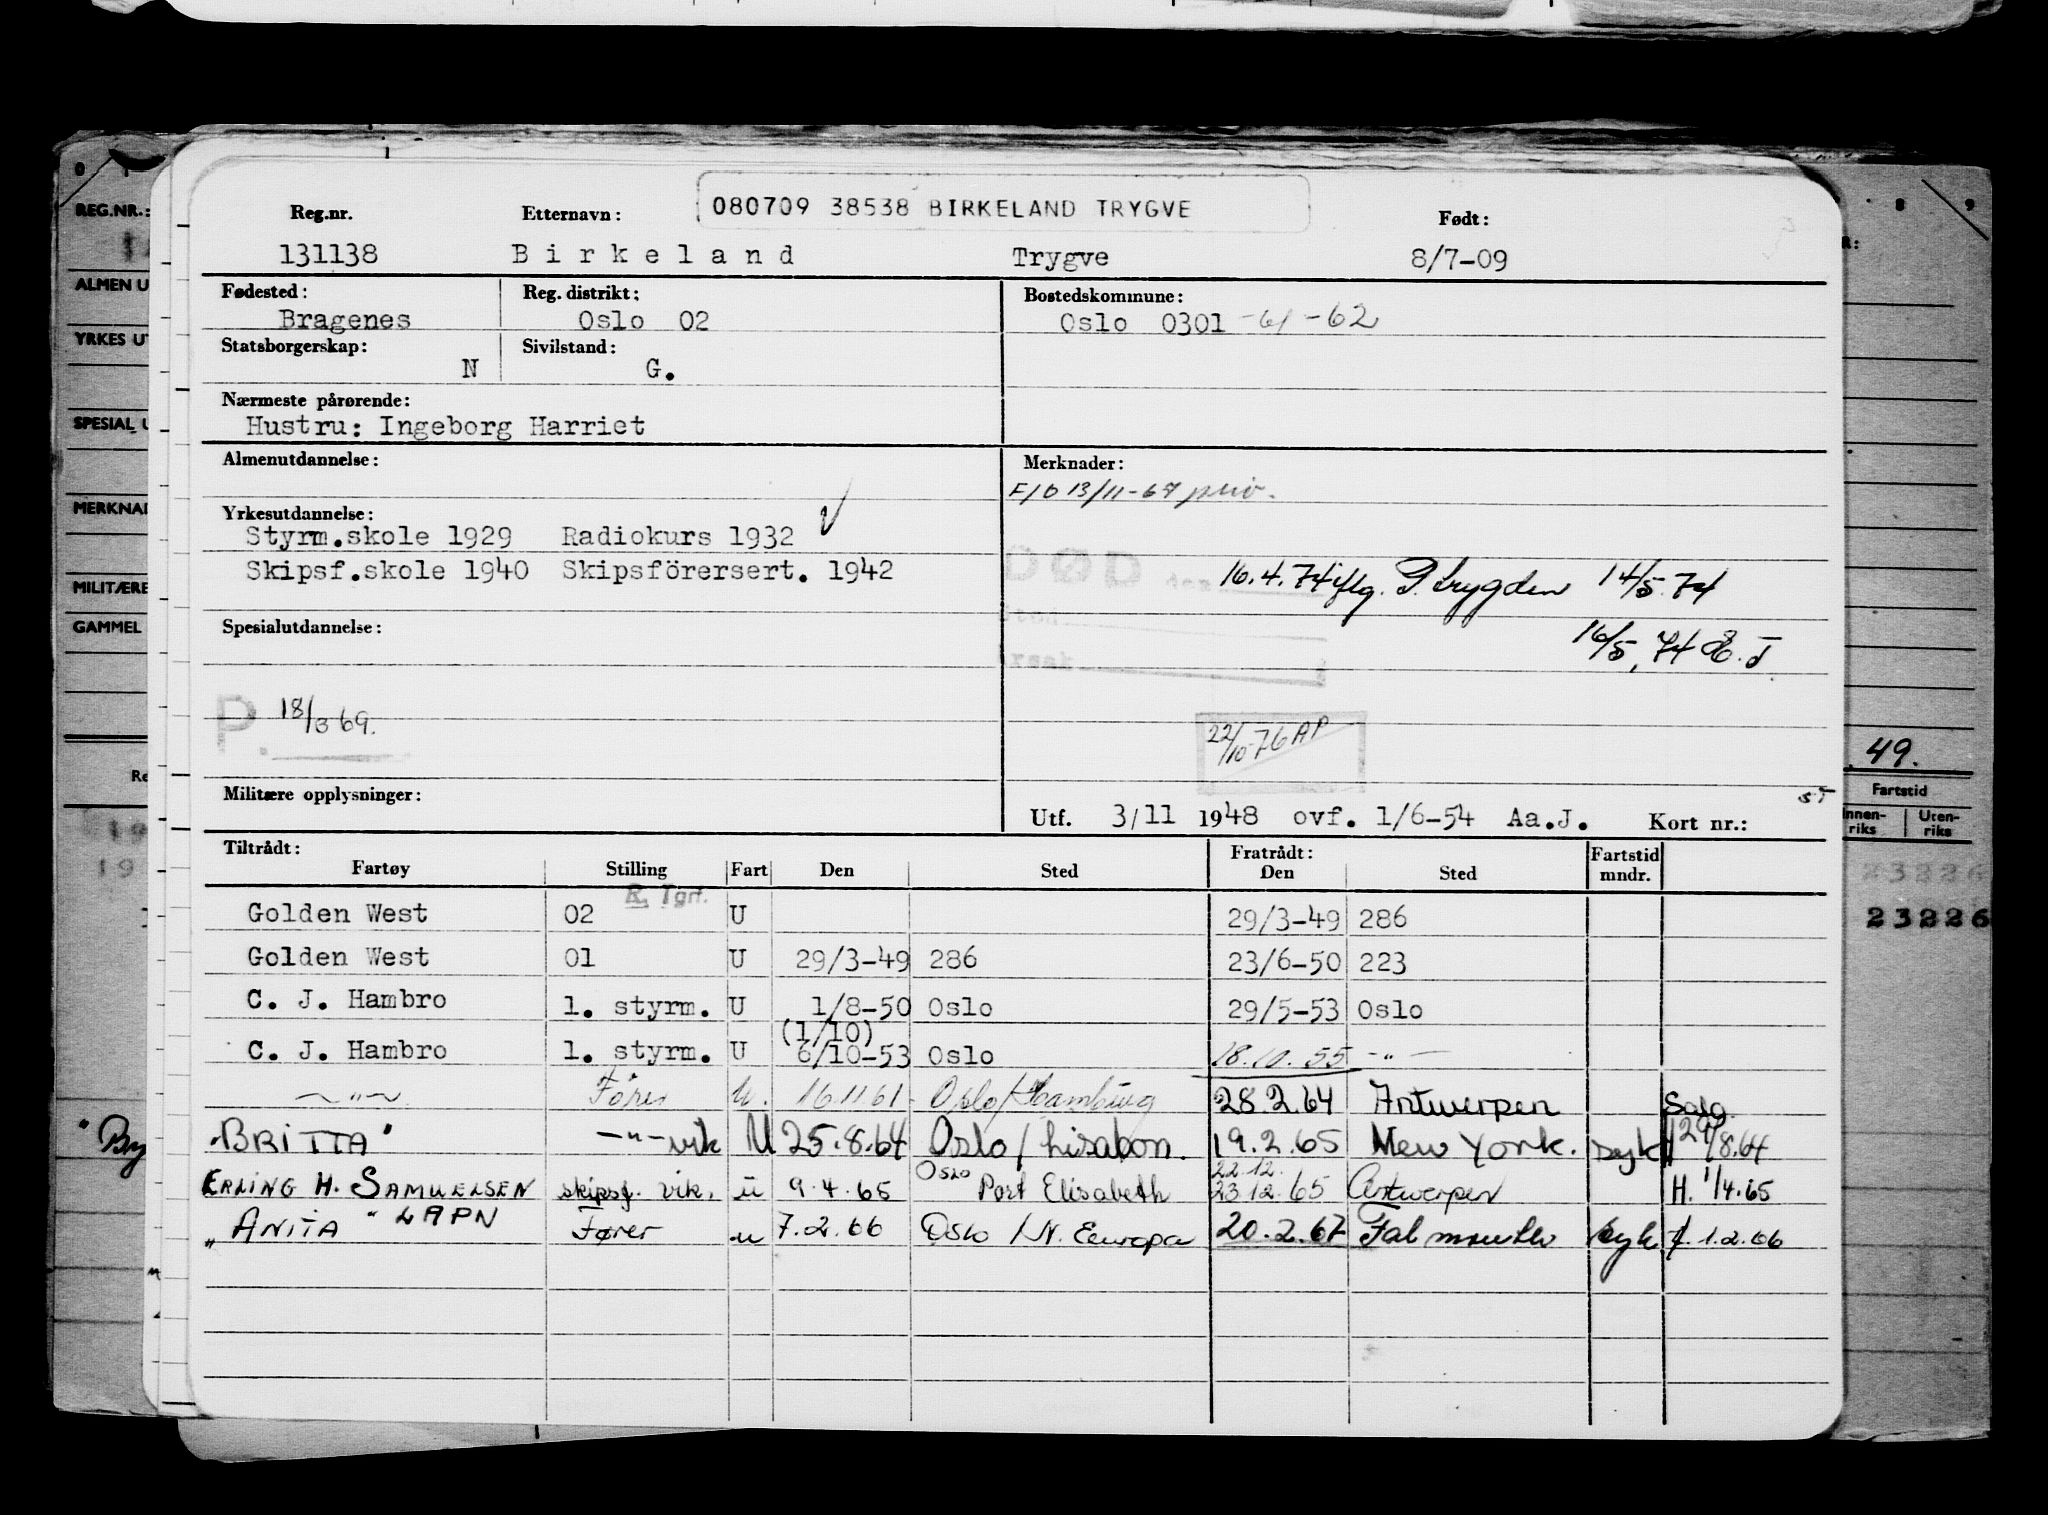 080709 38538 BIRKELAND TRYGVE
Reg.nr. Etternavn: Født:
131138 Birkeland Trygve 8/7-09
Fødested: Reg. distrikt: Bostedskommune:
Bragenes Oslo 02 Oslo 0301 -61 -62
Statsborgerskap: Sivilstand:
N G.
Nærmeste pårørende:
Hustru: Ingeborg Harriet
Almenutdannelse: Merknader:
F/O 13/11-67
Yrkesutdannelse:
Styrm.skole 1929 Radiokurs 1932
Skipsf.skole 1940 Skipsförersert. 1942
DØD den 16.4.74 iflg. P.trygden 14/5.74
Spesialutdannelse:
16/5.74 E.J
Årsak
P. 18/3 69.
22/10-76 AP
Militære opplysninger:
Utf. 3/11 1948 ovf. 1/6-54 Aa.J. Kort nr.:
Tiltrådt: Fratrådt: Fartstid
Fartøy Stilling Fart Den Sted Den Sted mndr.
R. Tgrf.
Golden West 02 U 29/3-49 286
Golden West 01 U 29/3-49 286 23/6-50 223
C. J. Hambro 1. styrm. U 1/8-50 Oslo 29/5-53 Oslo
(1/10)
C. J. Hambro 1. styrm. U 6/10-53 Oslo 18.10.55 -"-
-"- Fører U. 16.11 61 Oslo/Hamburg 28.2.64 Antwerpen Salg.
"BRITTA" -"- vik U 25.8.64 Oslo/Lisabon. 19.2.65 New York. syk 29/8.64
Oslo 22.12.
ERLING H. SAMUELSEN skipsf. vik. u 9.4.65 Port Elisabeth 23.12.65 Antwerpen H. 1/4.65
"ANITA" LAPN Fører u 7.2.66 Oslo / N. Europa 20.2.67 Falmouth syk 1.2.66
0 1 8 9
REG.NR.:
ALMEN U
YRKES UT
SPESIAL U
MERKNAD
MILITÆRE
GAMMEL
49.
Fartstid
Innen-riks Uten-riks
23226
23226